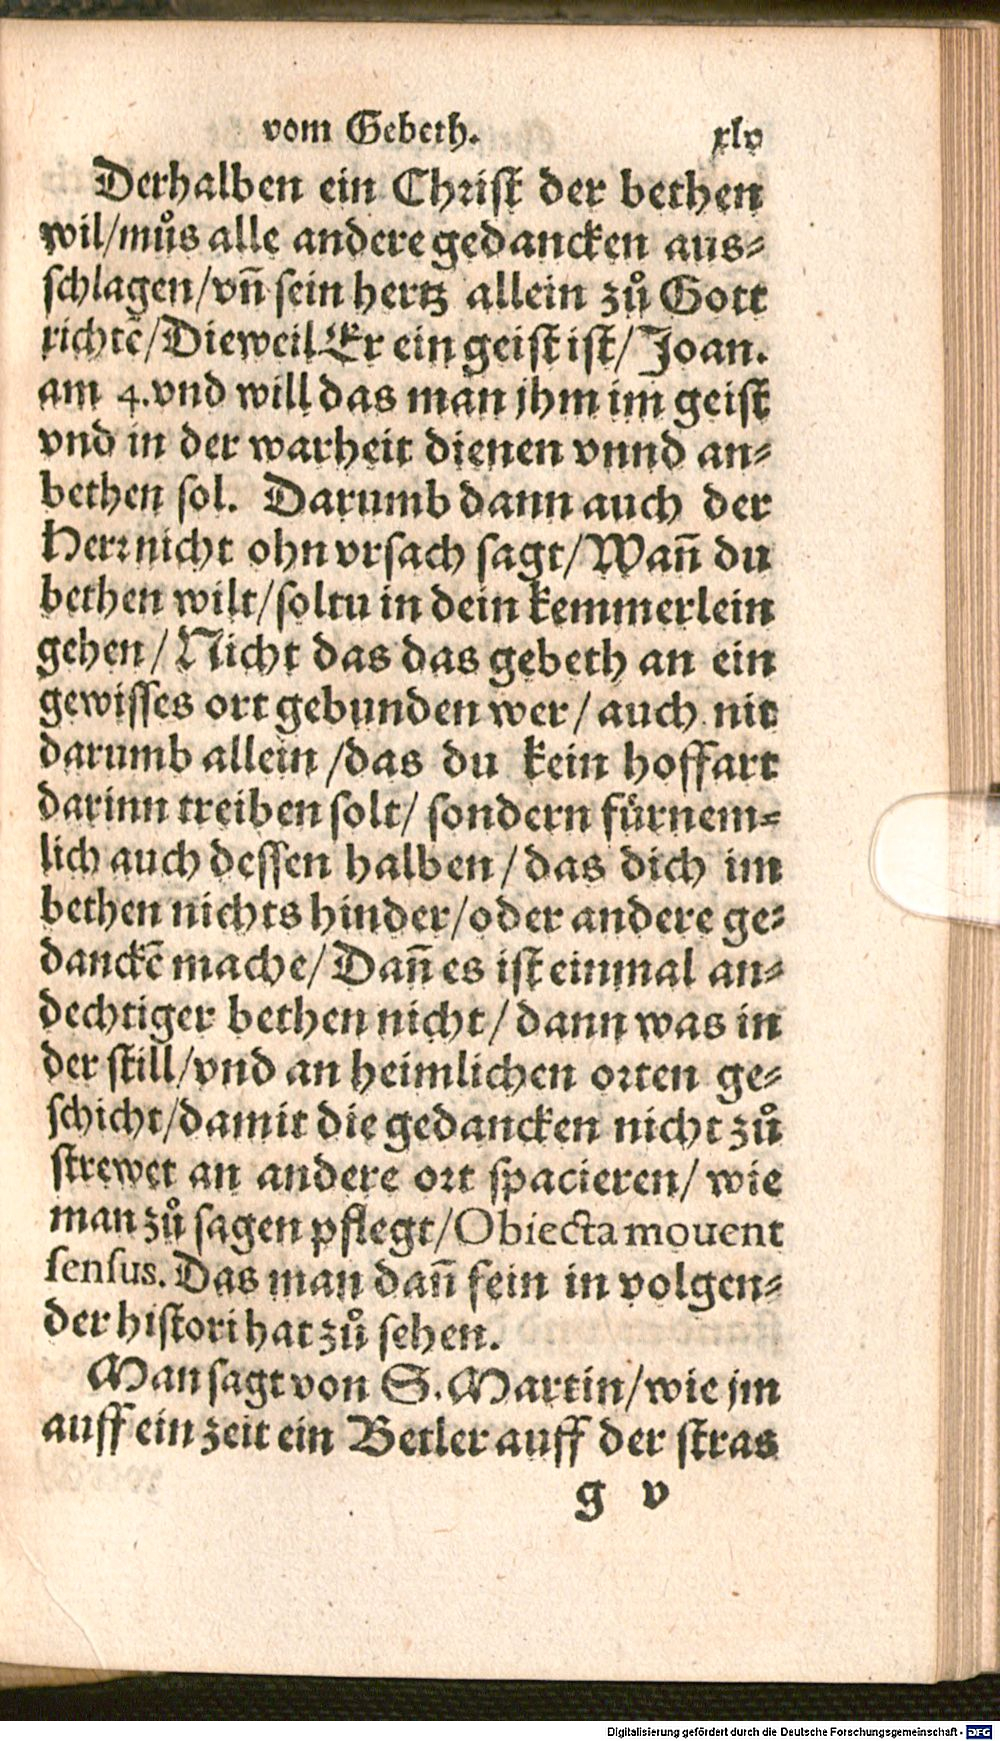 vom Gebeth. xlv
Derhalben ein Christ der bethen
wil/můs alle andere gedancken aus-
schlagen/vn̄ sein hertz allein zů Gott
richtē/Dieweil Er ein geist ist/Joan.
am 4.vnd will das man jhm im geist
vnd in der warheit dienen vnnd an-
bethen sol. Darumb dann auch der
Herr nicht ohn vrsach sagt/Wan̄ du
bethen wilt/soltu in dein kemmerlein
gehen/Nicht das das gebeth an ein
gewisses ort gebunden wer/auch nit
darumb allein/das du kein hoffart
darinn treiben solt/sondern fürnem-
lich auch dessen halben/das dich im
bethen nichts hinder/oder andere ge-
danckē mache/Dan̄ es ist einmal an-
dechtiger bethen nicht/dann was in
der still/vnd an heimlichen orten ge-
schicht/damit die gedancken nicht zů
strewet an andere ort spacieren/wie
man zů sagen pflegt/Obiecta mouent
sensus. Das man dan̄ fein in volgen-
der histori hat zů sehen.
Man sagt von S. Martin/wie jm
auff ein zeit ein Betler auff der stras
g v
Digitalisierung gefördert durch die Deutsche Forschungsgemeinschaft - DFG